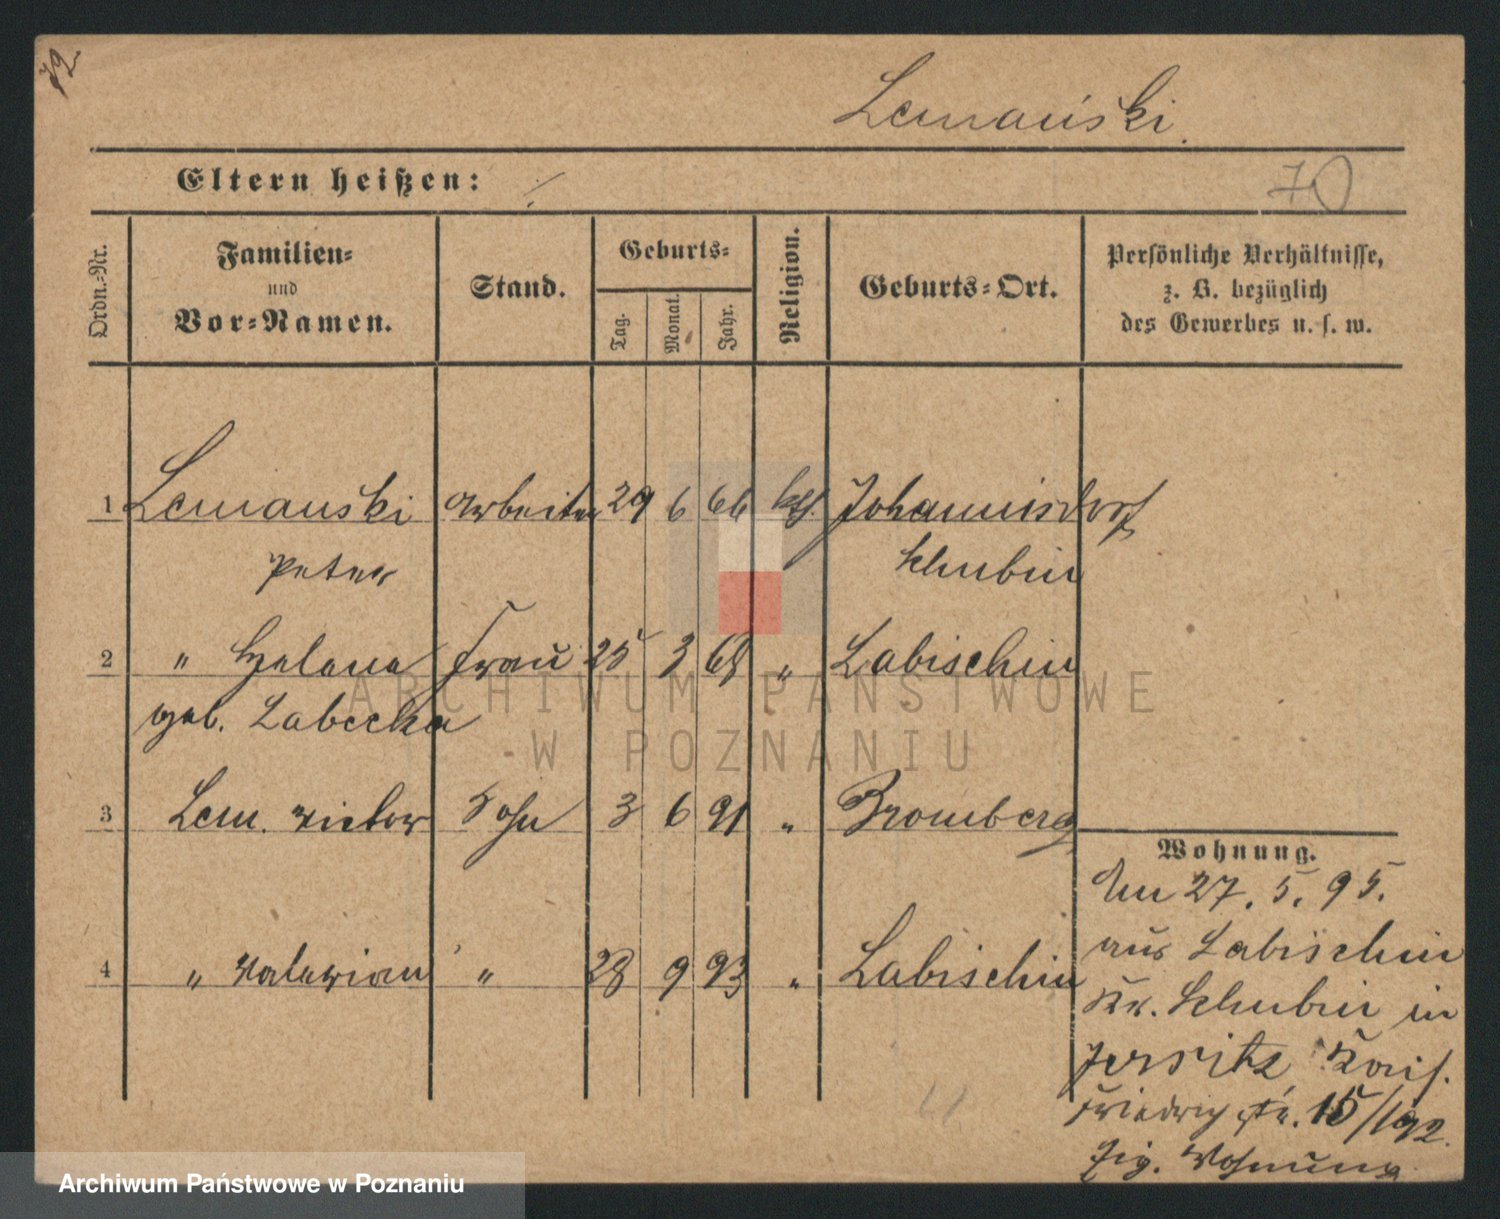 72
Lemański
Eltern heißen: /
70
Ordn.-Nr.
Familien-
und
Vor-Namen.
Stand.
Geburts-
Tag.
Monat.
Jahr.
Religion.
Geburts-Ort.
Persönliche Verhältnisse,
z. B. bezüglich
des Gewerbes u. s. w.
1 Lemański Arbeiter 29 6 66 kth. Johannisdorf
Peter Schubin
2 " Helene Frau 25 3 68 " Labischin
geb. Labecka
3 Lem. Victor Sohn 3 6 91 " Bromberg
4 " Valerian " 28 9 93 " Labischin
Wohnung.
Am 27. 5. 95.
aus Labischin
Kr. Schubin in
Jersitz Kais.
Friedrich str. 15/192.
Eig. Wohnung
ARCHIWUM PAŃSTWOWE
W POZNANIU
Archiwum Państwowe w Poznaniu